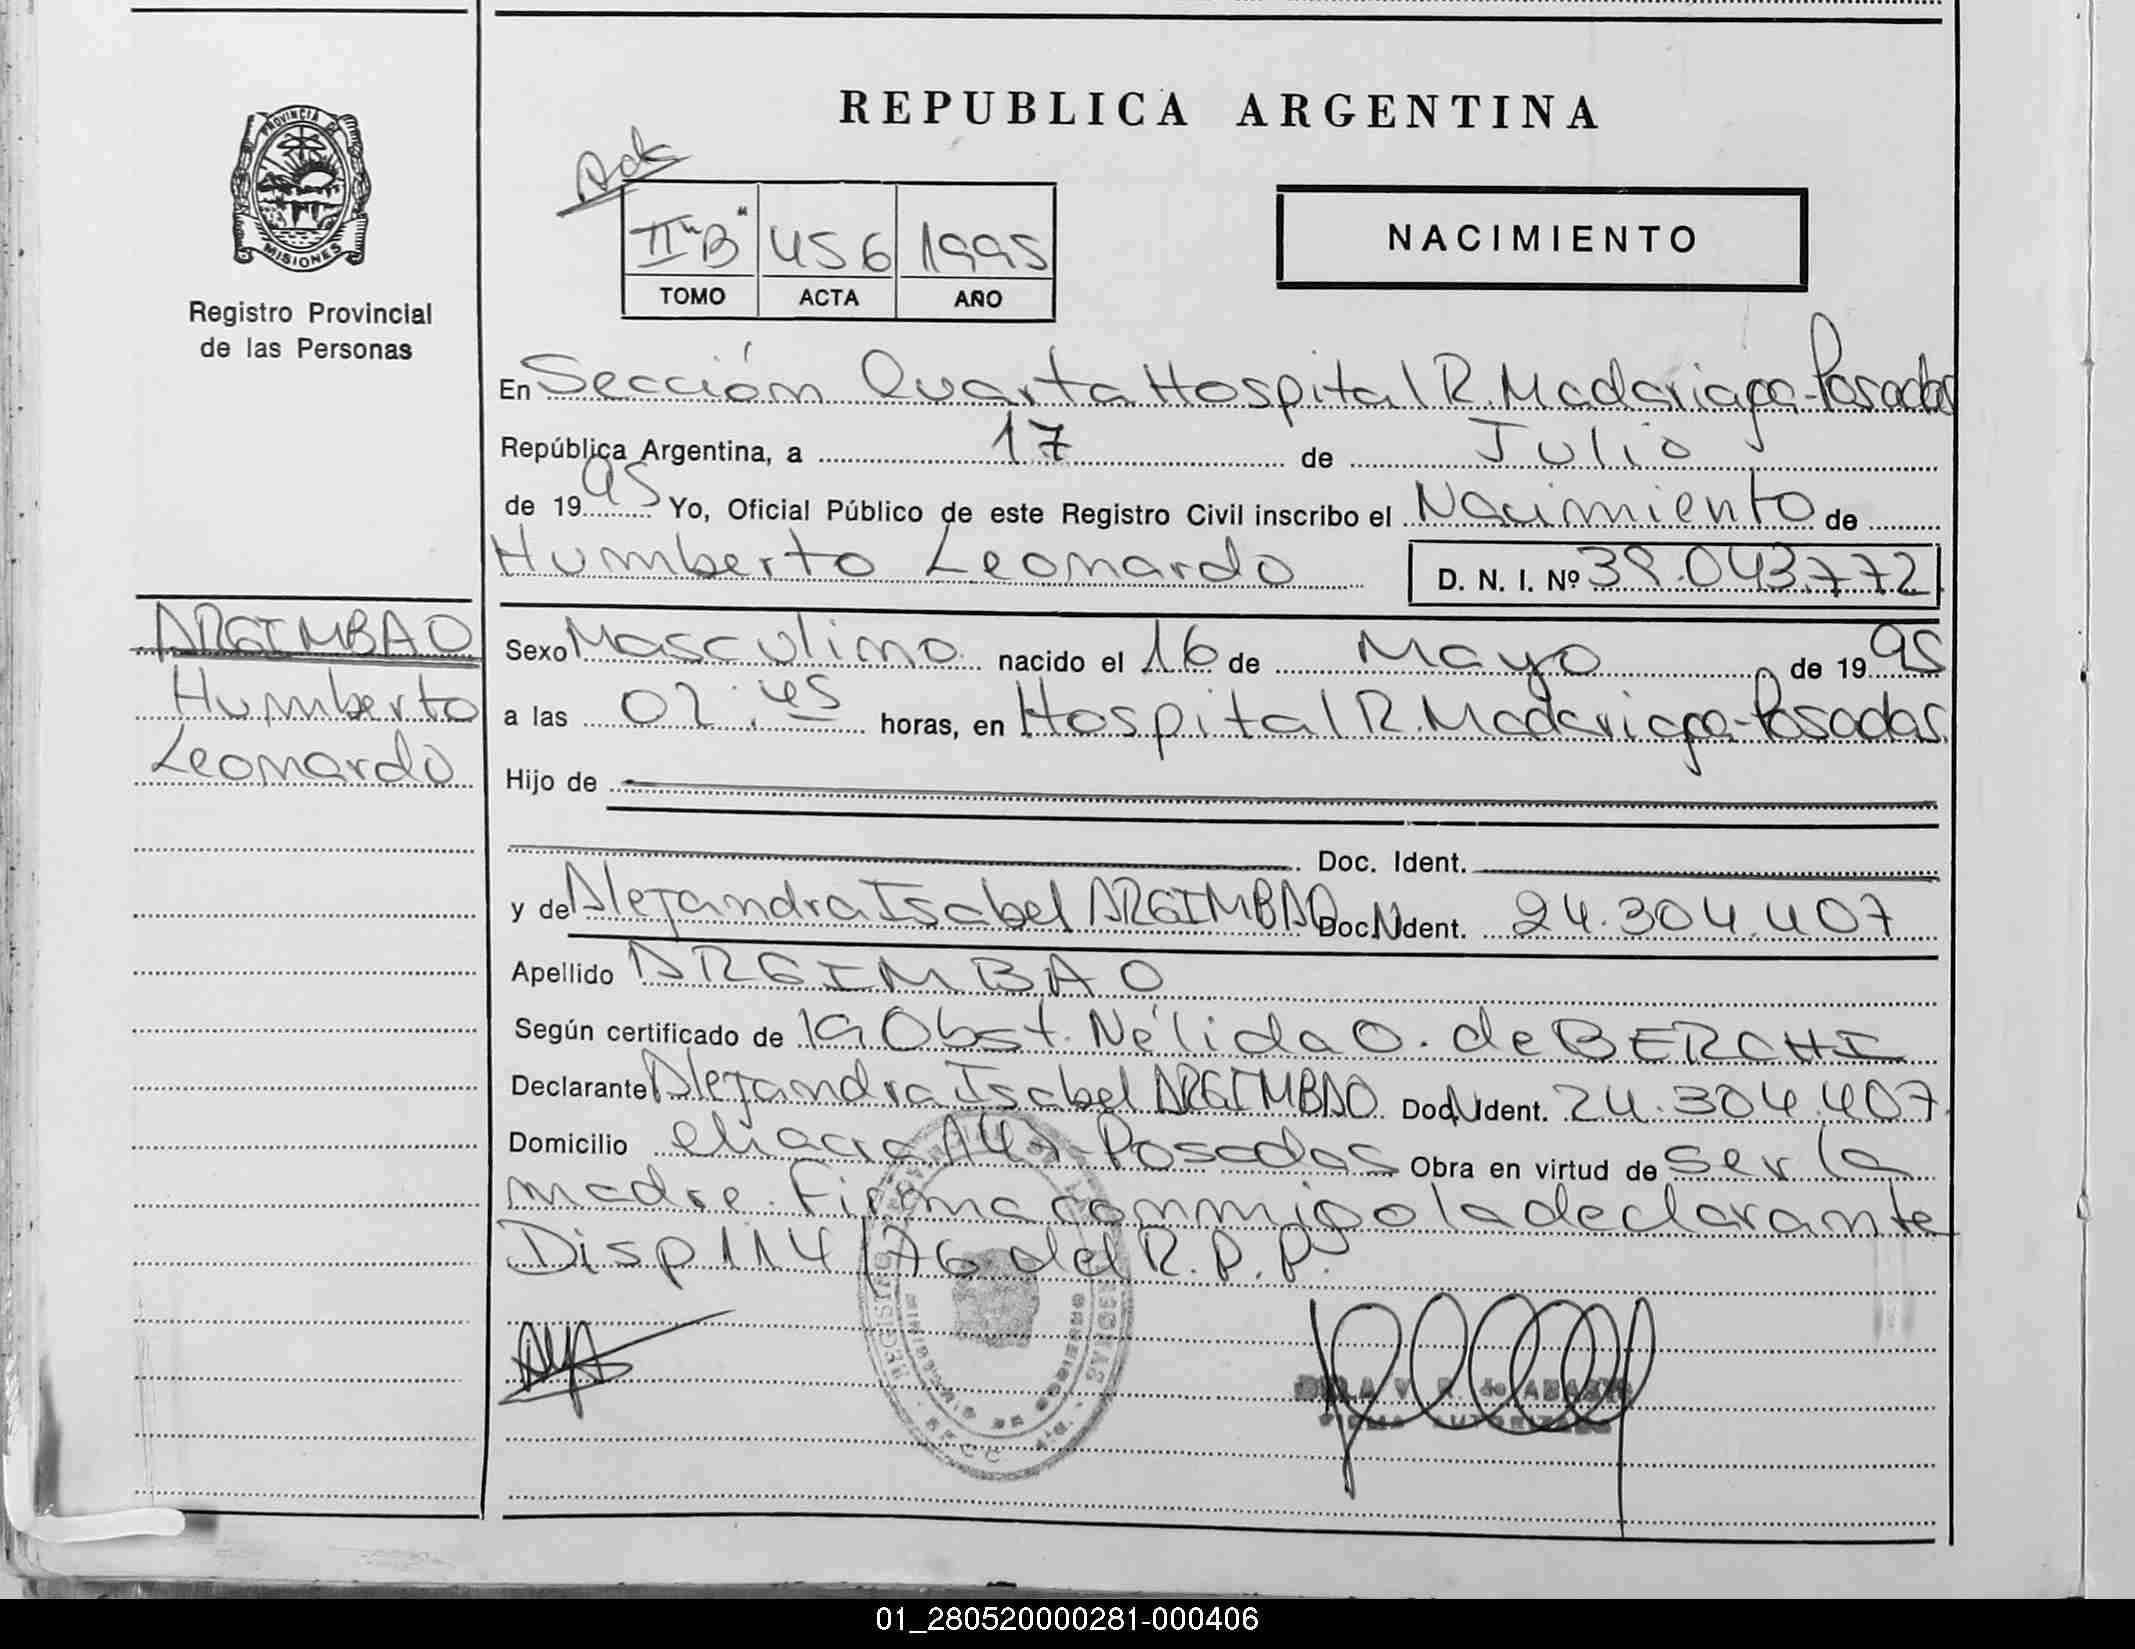 REPUBLICA ARGENTINA
PROVINCIA DE
MISIONES
Registro Provincial
de las Personas
II "B" 456 1995
TOMO ACTA AÑO
NACIMIENTO
En Sección Quarta Hospital R. Madariaga-Posadas
República Argentina, a 17 de Julio
de 1995 Yo, Oficial Público de este Registro Civil inscribo el Nacimiento de
Humberto Leonardo D. N. I. Nº 39.043.772
ARGIMBAO
Humberto
Leonardo
Sexo Masculino nacido el 16 de Mayo de 1995
a las 02:45 horas, en Hospital R. Madariaga-Posadas.
Hijo de
Doc. Ident.
y de Alejandra Isabel ARGIMBAO Doc. Ident. 24.304.407
Apellido ARGIMBAO
Según certificado de la Obst. Nélida O. de BERCHI
Declarante Alejandra Isabel ARGIMBAO Doc. Ident. 24.304.407
Domicilio chacra 147-Posadas Obra en virtud de ser la
madre. Firma conmigo la declarante
Disp 114/76 del R.P.P.
FIRMA AUTORIZADA
01_280520000281-000406